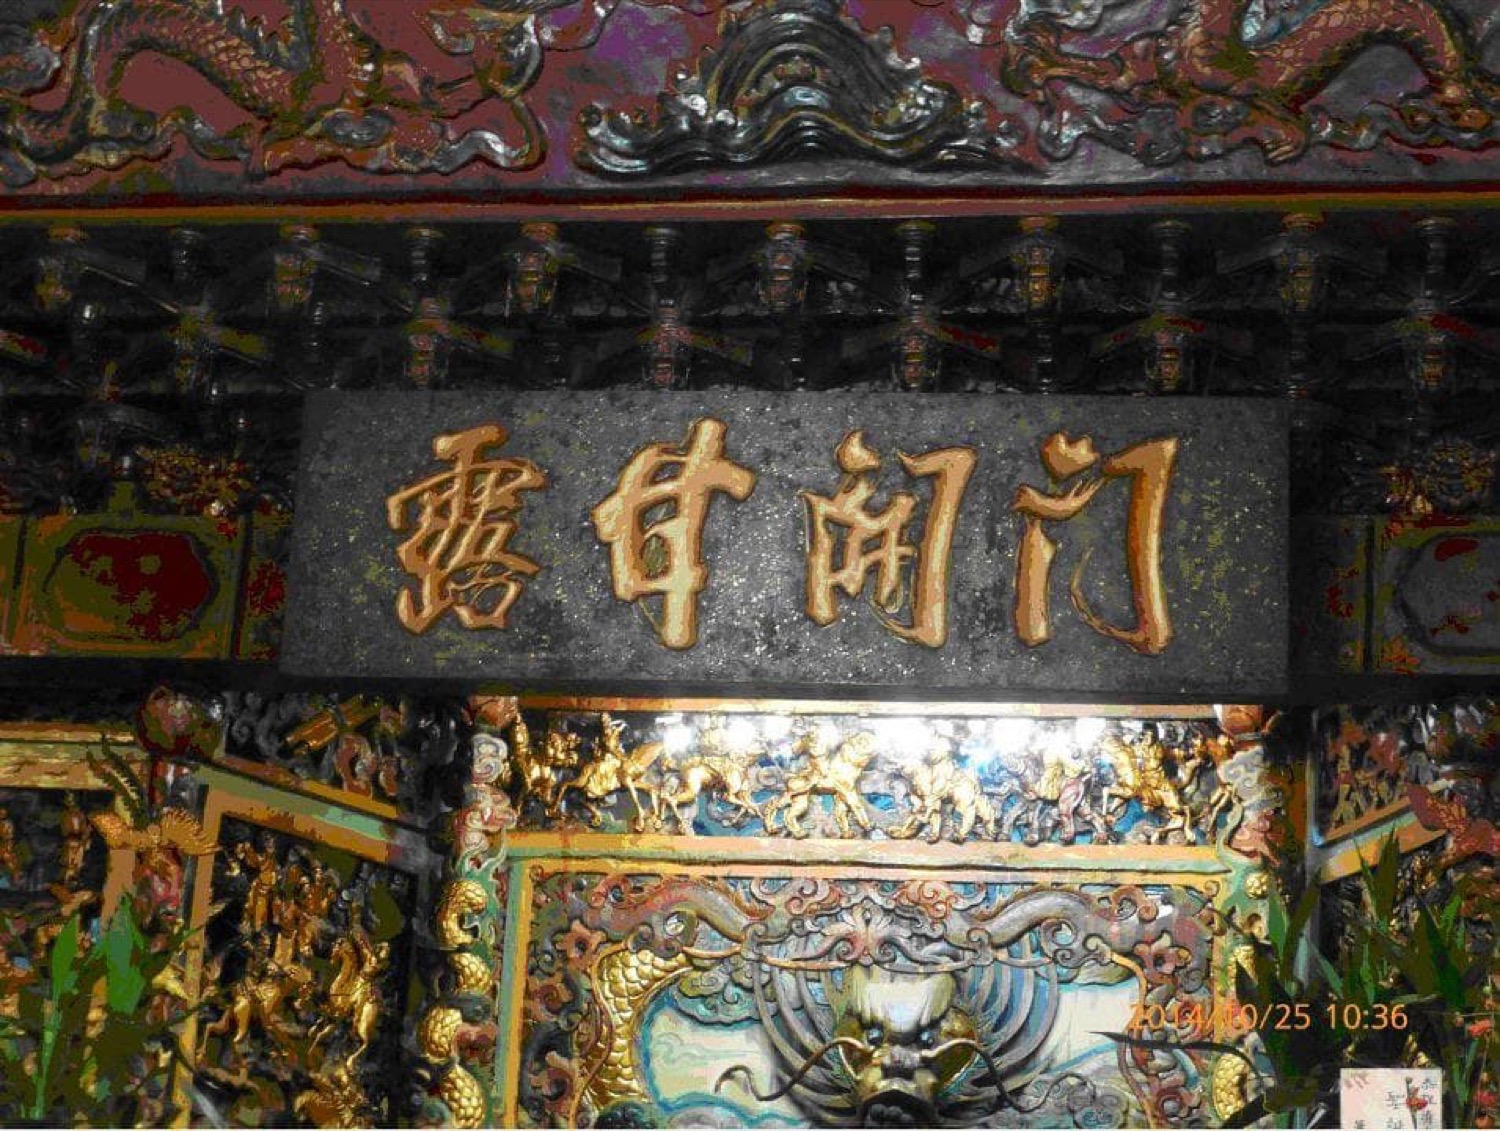 露甘開门
2014/10/25 10:36